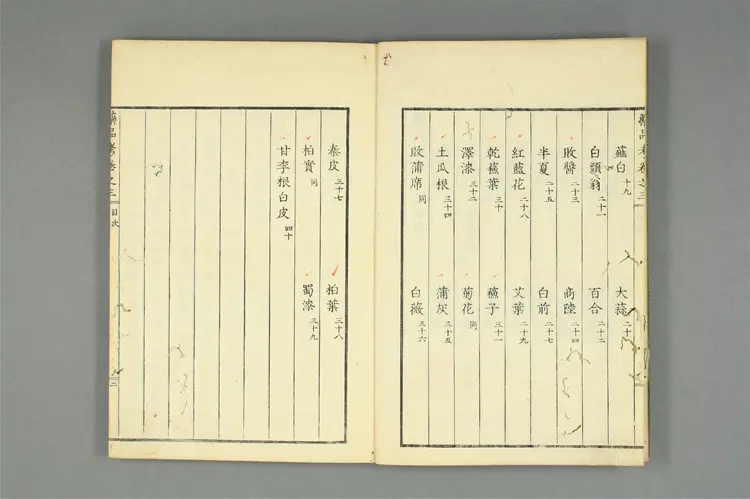 藥品考卷之三
薤白 十九 大蒜 二十
白頭翁 二十一 百合 二十二
敗醬 二十三 商陸 二十四
半夏 二十五 白前 二十七
紅藍花 二十八 艾葉 二十九
乾蘇葉 三十 蘇子 三十一
澤漆 三十二 菊花 同
土瓜根 三十四 蒲灰 三十五
敗蒲席 同 白薇 三十六
秦皮 三十七 柏葉 三十八
柏實 同 蜀漆 三十九
甘李根白皮 四十
藥品考卷之三 目次 二